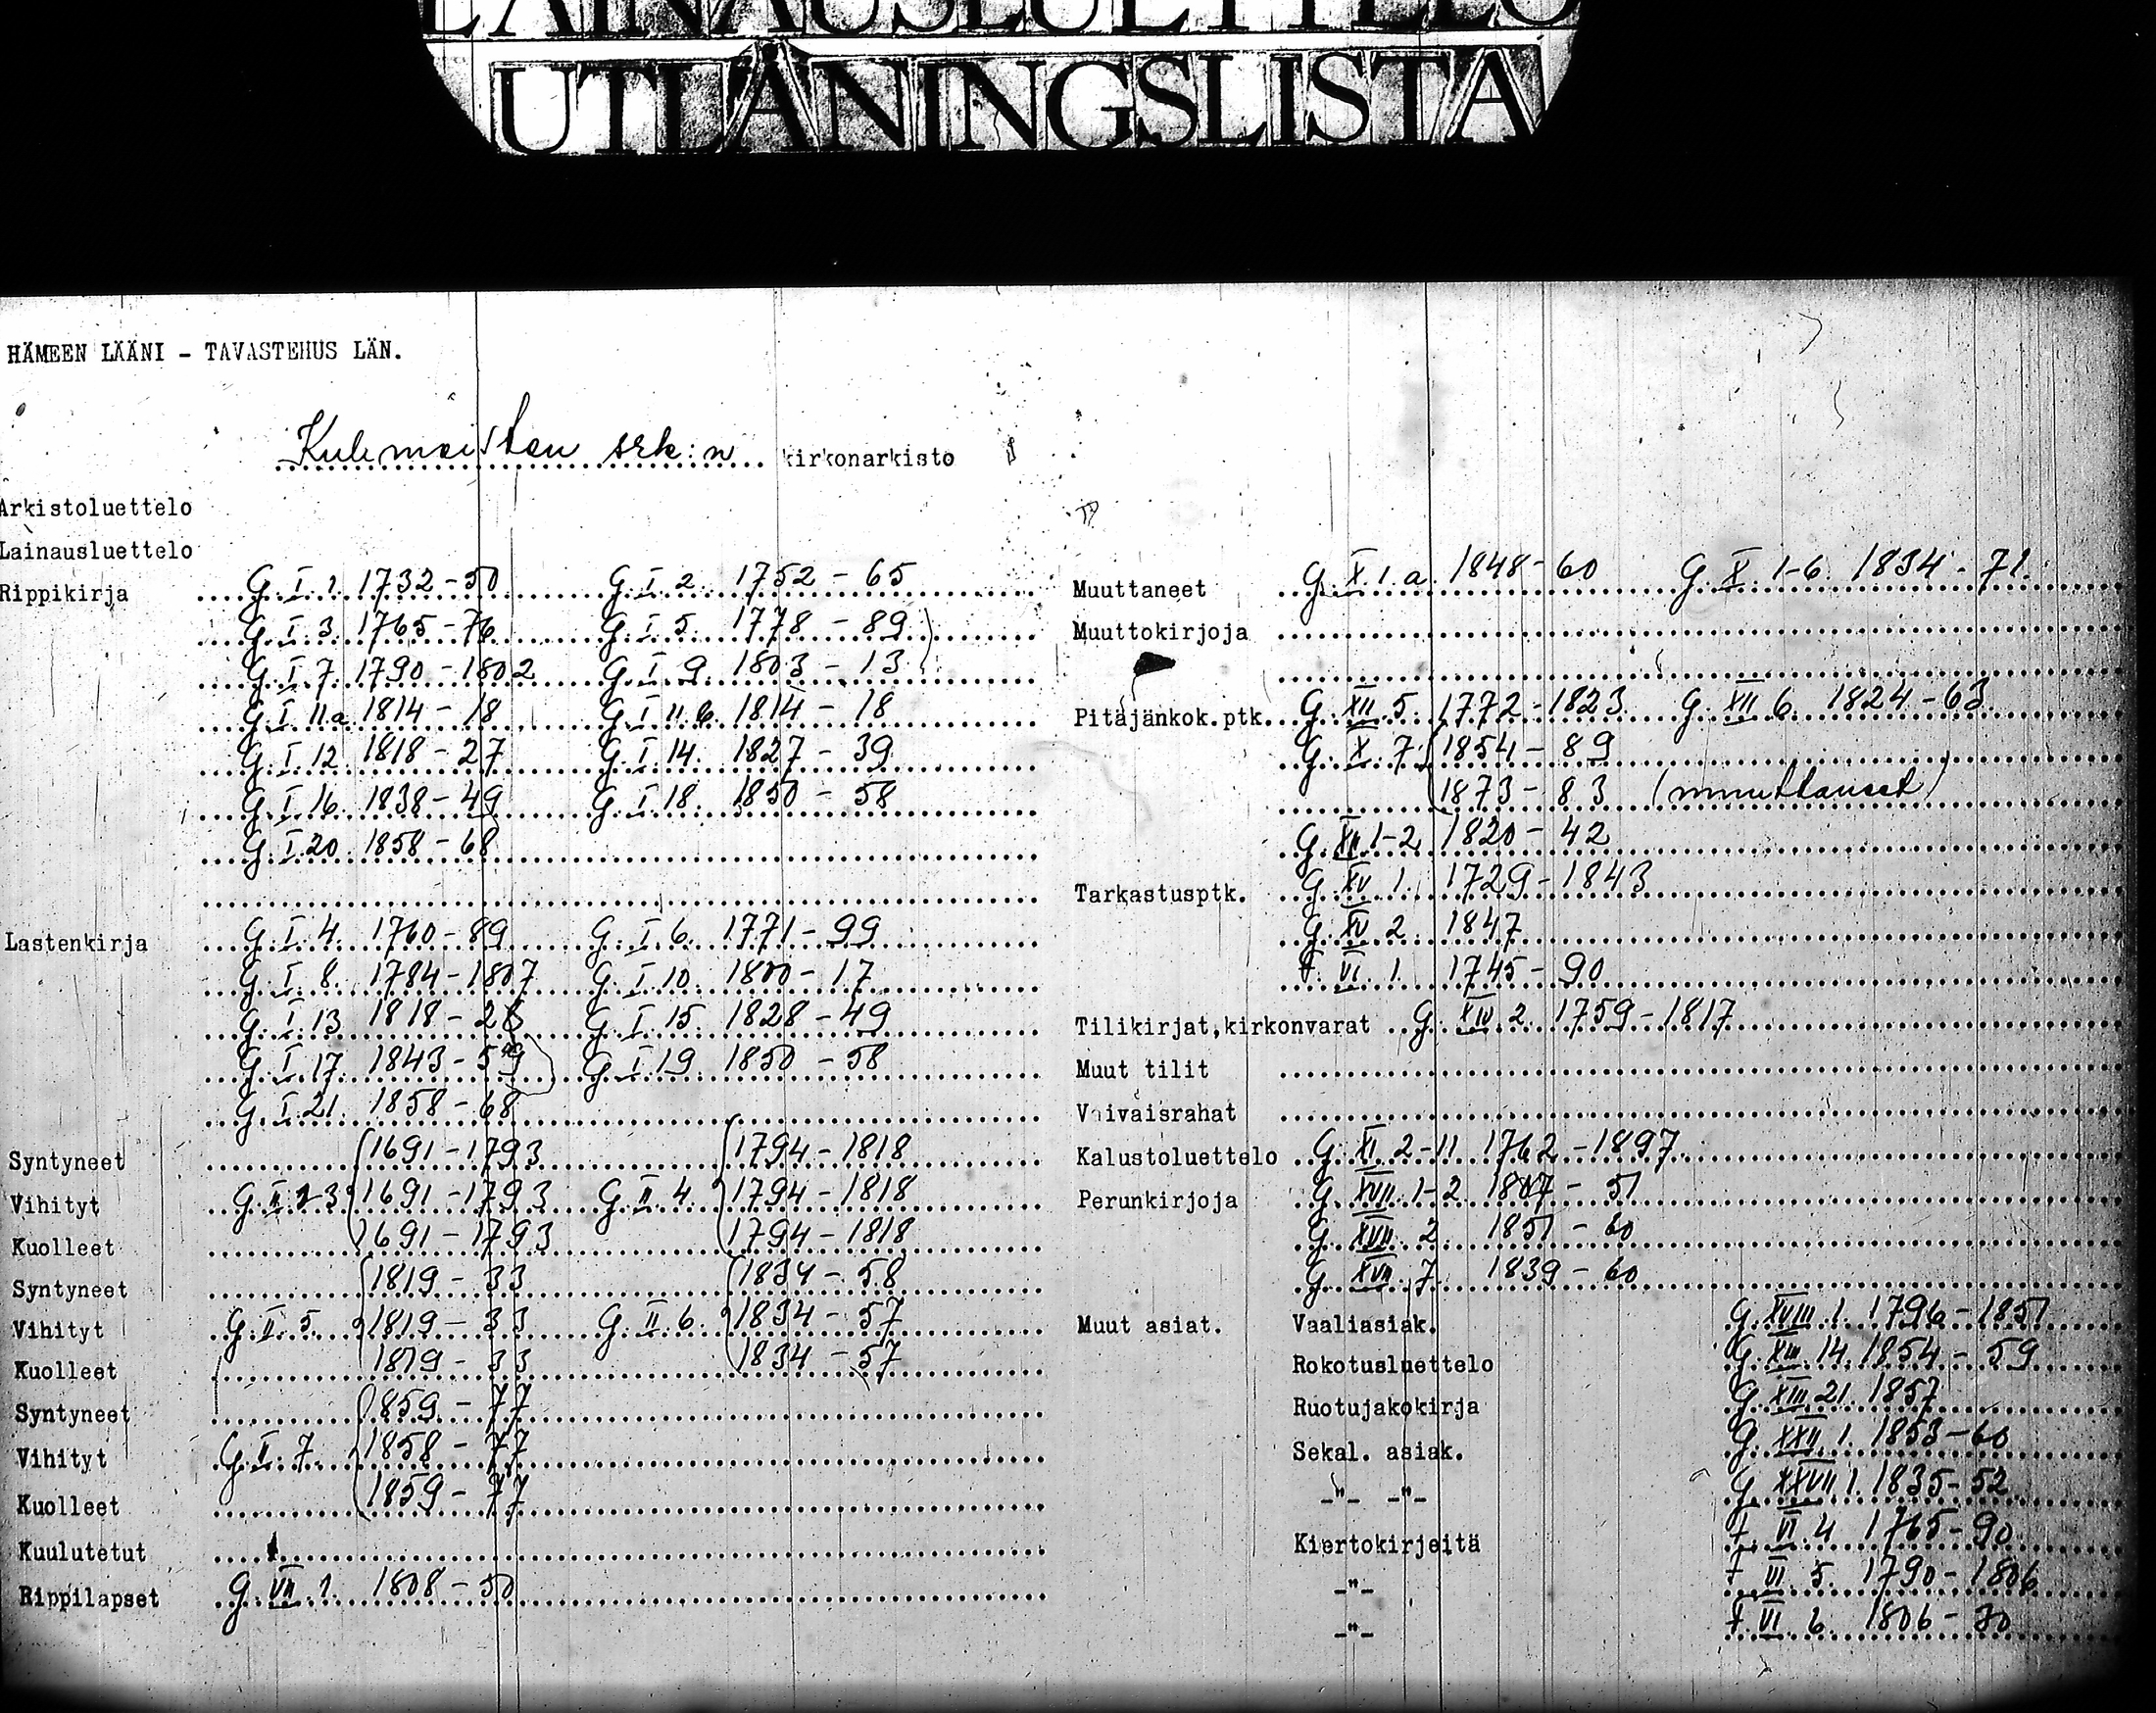 LAINAUSLUETTELO
UTLÅNINGSLISTA
HÄMEEN LÄÄNI - TAVASTEHUS LÄN.
Kulemoisten srk:n kirkonarkisto
Arkistoluettelo
Lainausluettelo
Rippikirja G. I. 1. 1732-50 G. I. 2. 1752-65
G. I. 3. 1765-76 G. I. 5. 1778-89
G. I. 7. 1790-1802 G. I. 9. 1803-13
G. I. 11.a. 1814-18 G. I. 11.b. 1814-18
G. I. 12. 1818-27 G. I. 14. 1827-39
G. I. 16. 1838-49 G. I. 18. 1850-58
G. I. 20. 1858-68
Lastenkirja G. I. 4. 1760-89 G. I. 6. 1771-99
G. I. 8. 1784-1807 G. I. 10. 1800-17
G. I. 13. 1818-28 G. I. 15. 1828-49
G. I. 17. 1843-59 G. I. 19. 1850-58
G. I. 21. 1858-68
Syntyneet 1691-1793 1794-1818
Vihityt G. II. 2-3 1691-1793 G. II. 4. 1794-1818
Kuolleet 1691-1793 1794-1818
Syntyneet 1819-33 1834-58
Vihityt G. II. 5. 1819-33 G. II. 6. 1834-57
Kuolleet 1819-33 1834-57
Syntyneet 1859-77
Vihityt G. II. 7. 1858-77
Kuolleet 1859-77
Kuulutetut
Rippilapset G. VII. 1. 1808-50
Muuttaneet G. X. 1.a. 1848-60 G. X. 1-6. 1834-71.
Muuttokirjoja
Pitäjänkok.ptk. G. XII. 5. 1772-1823. G. XII. 6. 1824-63.
G. X. 7. 1854-89
1873-83 (muuttaneet)
G. XII. 1-2. 1820-42
Tarkastusptk. G. XV. 1. 1729-1843
G. XV. 2. 1847
F. VI. 1. 1745-90
Tilikirjat,kirkonvarat G. XIV. 2. 1759-1817
Muut tilit
Vaivaisrahat
Kalustoluettelo G. XI. 2-11. 1762-1897.
Perunkirjoja G. XVII. 1-2. 1807-51
G. XVII. 2. 1851-60
G. XVII. 7. 1839-60
Muut asiat. Vaaliasiak. G. XVIII. 1. 1796-1851
Rokotusluettelo G. XIII. 14. 1854-59
Ruotujakokirja G. XIII. 21. 1857
Sekal. asiak. G. XXII. 1. 1853-60
-"- -"- G. XXVII. 1. 1835-52
Kiertokirjeitä F. VI. 4. 1765-90
-"- F. VI. 5. 1790-1806
-"- F. VI. 6. 1806-20